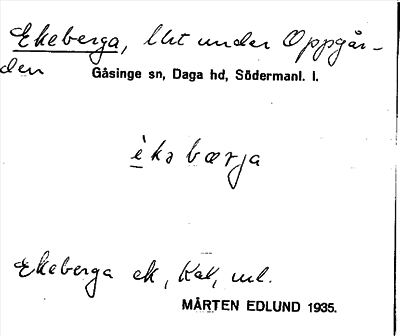 Ekeberga, lht under Oppgår-
den Gåsinge sn, Daga hd, Södermanl. l.
è kə bærja
Ekeberga ek, Kat,
MÅRTEN EDLUND 1935.